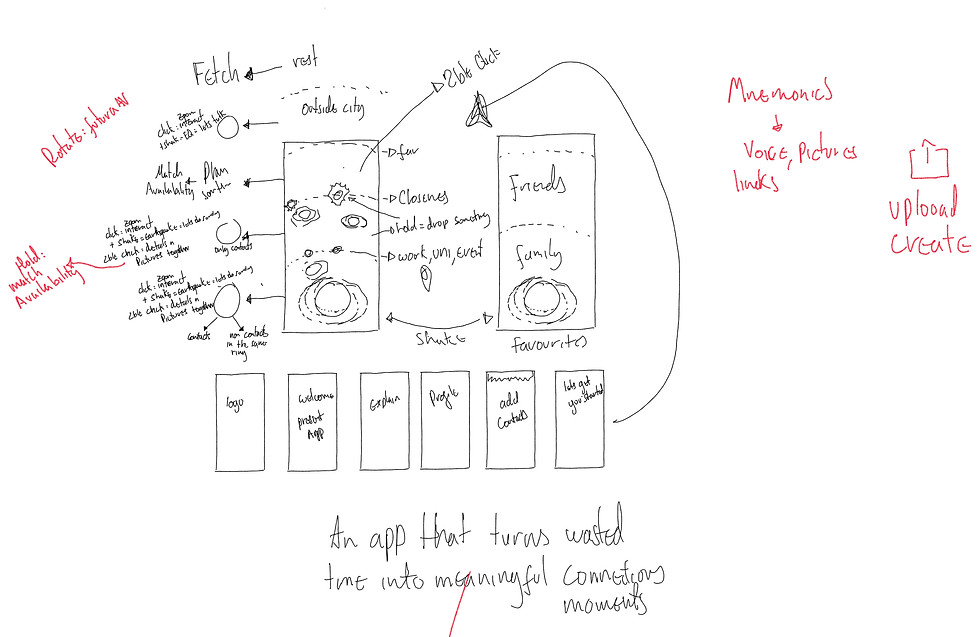 Fetch
rest
2ble Click
outside city
Rotate: futura AV
zoom
click: internet
+ shake = EQ = lets talk
far
Match
Availability
Plan
Closenes
hold = drop something
zoom
click: internet
+ shake = Earthquake = lets do
2ble click: details n
Pictures together
only contacts
work, uni, event
Hold:
match
Availability
zoom
click: internet
+ shake = Earthquake = lets do
2ble click: details n
Pictures together
contacts
non contacts
in the same
ring
Friends
family
shake
favourites
Mnemonics
Voice, Pictures
links
upload
create
logo
welcome
present
App
explain
Profile
add
Contacts
lets get
you started
An app that turns wasted
time into meaningful connections
moments